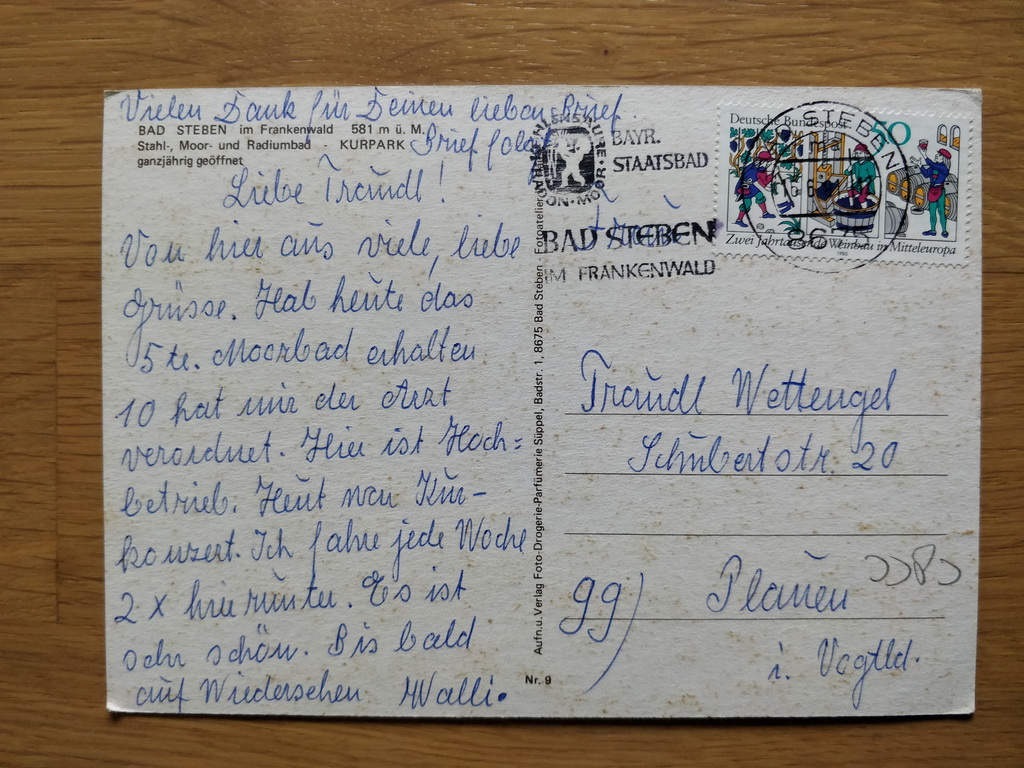 Vielen Dank für Deinen lieben Brief
BAD STEBEN im Frankenwald 581 m ü. M.
Stahl-, Moor- und Radiumbad · KURPARK
ganzjährig geöffnet
Brief folgt
Liebe Traudl!
Von hier aus viele, liebe
Grüsse. Hab heute das
5 te. Moorbad erhalten
10 hat mir der Arzt
verordnet. Hier ist Hoch=
betrieb. Heut war Kur-
konzert. Ich fahre jede Woche
2 x hierrunter. Es ist
sehr schön. Bis bald
auf Wiedersehen Walli.
Aufn. u. Verlag Foto-Drogerie-Parfümerie Süppel, Badstr. 1, 8675 Bad Steben · Fotoatelier
Nr. 9
BAYR.
STAATSBAD
BAD STEBEN
IM FRANKENWALD
RADON · MOOR ·
STEBEN
Deutsche Bundespost
50
Zwei Jahrtausende Weinbau in Mitteleuropa
1980
Traudl Wettengel
Schubertstr. 20
99) Plauen
i. Vogtld.